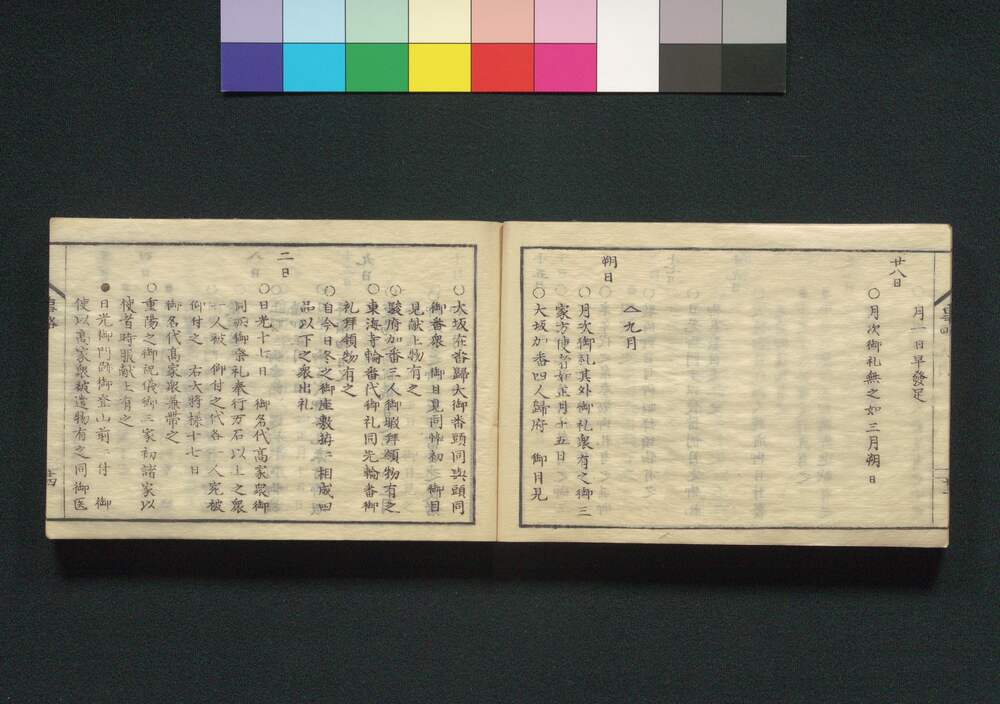 月一日早發足
廿八日
○月次御礼無之如三月朔日
△九月
朔日
○月次御礼其外御礼衆有之御三
家方使者如正月十五日
○大坂加番四人歸府　御目見
○大坂在番歸大御番頭同与頭同
御番衆　御目見同
御目
見献上物有之
○駿府加番三人御暇拜領物有之
○東海寺輪番代御礼同先輪番御
礼拜領物有之
○自今日冬之御座敷拵ニ相成四
品以下之衆出礼
二日
○日光十七日　御名代高家衆御
同所御祭礼奉行万石以上之衆
一人被　仰付之代各一人宛被
仰付之　右大將様十七日
御名代高家衆兼帶之
○重陽之御祝儀御三家初諸家以
使者時服献上有之
●日光御門跡御登山前ニ付　御
使以高家衆被遣物有之同御医